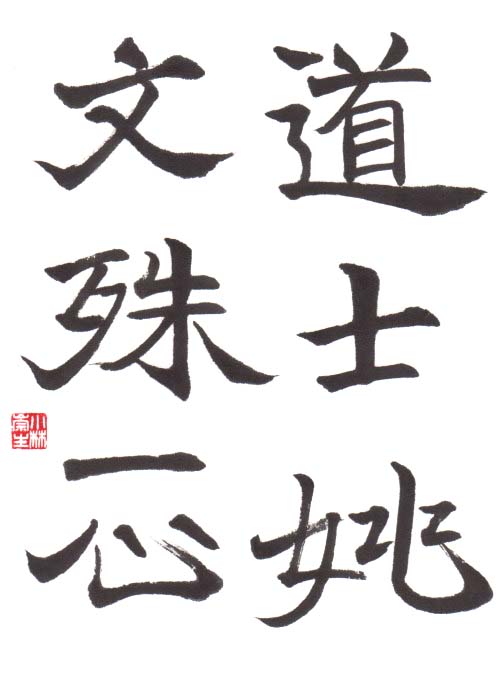 道士姚
文殊一心
小林